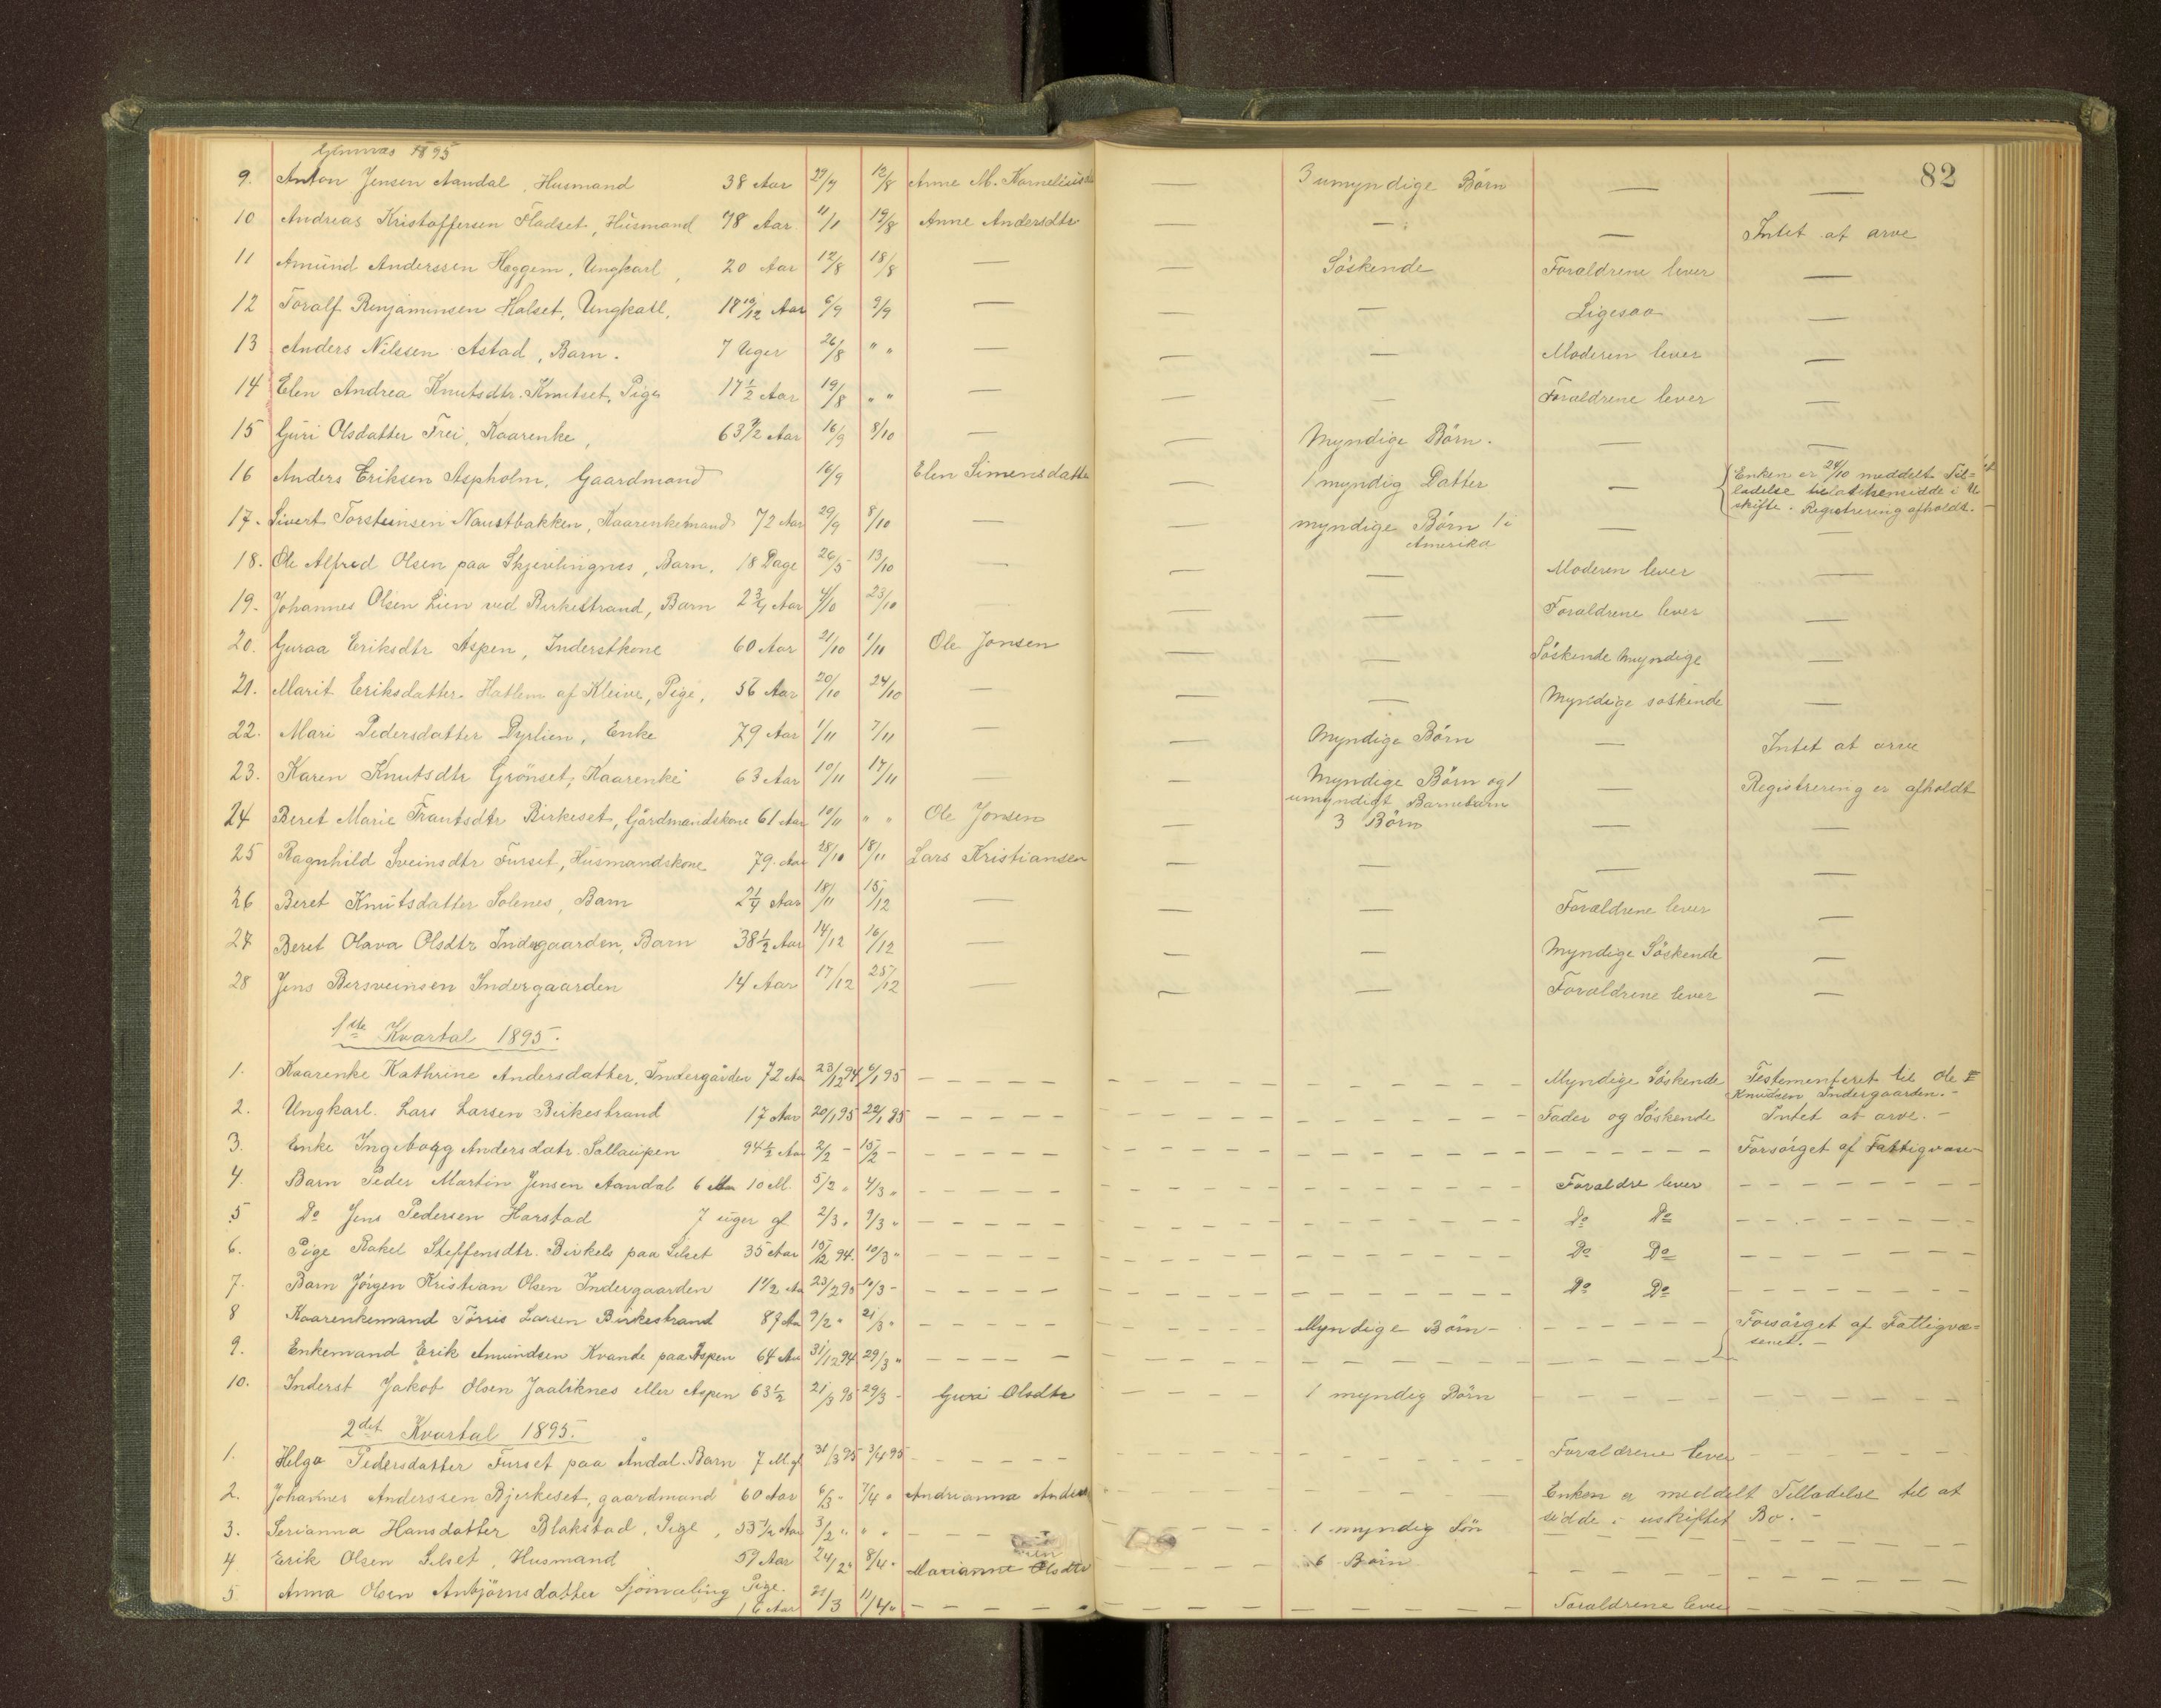 1895
82
9. Anton Jensen Aandal, Husmand 38 Aar 29/7 12/8 Anne M. — 3 umyndige Börn — —
10 Andreas Kristoffersen Fladset, Husmand 78 Aar 11/1 19/8 Anne Andersdtr — — — Intet at arve
11 Amund Anderssen Hoggem, Ungkarl, 20 Aar 12/8 18/8 — — Söskende Forældrene lever —
12 Toralf Benjaminsen Halset, Ungkarl, 18 10/12 Aar 6/9 9/9 — — — Ligesaa —
13 Anders Nilssen Astad, Barn. 7 Uger 26/8 " " — — — Moderen lever —
14 Elen Andrea Knutsdtr. Knutset, Pige 17 1/2 Aar 19/8 " " — — — Forældrene lever —
15 Guri Olsdatter Frei, Kaarenke, 63 1/2 Aar 16/9 8/10 — — Myndige Börn. — —
16 Anders Eriksen Aspholm, Gaardmand 16/9 Elen Simensdatter — 1 myndig Datter — Enken er 24/10 meddelt Til=
ladelse til at hensidde i U
skifte. Registrering afholdt.
17. Sivert Torsteinsen Naustbakken, Kaarenkemand 72 Aar 29/9 8/10 — — myndige Börn 1 i — —
Amerika
18. Ole Alfred Olsen paa Skjevlingnes, Barn, 18 Dage 26/5 13/10 — — — Moderen lever —
19. Johannes Olsen Lien ved Birkestrand, Barn 2 3/4 Aar 4/10 23/10 — — Forældrene lever —
20. Guraa Eriksdtr Aspen, Inderstkone 60 Aar 21/10 1/11 Ole Jonsen — — Söskende Myndige —
21. Marit Eriksdatter Hatlem af Kleive, Pige, 56 Aar 20/10 24/10 — — — Myndige söskende —
22. Mari Pedersdatter Dyrlien, Enke 79 Aar 1/11 7/11 — — Myndige Börn — Intet at arve
23. Karen Knutsdtr Grönset, Kaarenke 63 Aar 10/11 17/11 — — Myndige Börn og 1 — Registrering er afholdt
umyndigt Barnebarn
24 Beret Marie Frantsdtr Birkeset, Gårdmandskone 61 Aar 10/11 " " Ole Jonsen — 3 Börn — —
25 Ragnhild Sveinsdtr Furset, Husmandskone 79. Aar 28/10 18/11 Lars Kristiansen — — — —
26 Beret Knutsdatter Solenes, Barn 2 1/4 Aar 18/11 15/12 — — — Forældrene lever —
27 Beret Olava Olsdtr Indergaarden, Barn 38 1/2 Aar 14/12 16/12 — — — Myndige Söskende —
28 Jens Bersveinsen Indergaarden 14 Aar 17/12 25/12 — — — Forældrene lever —
1ste Kvartal 1895.
1. Kaarenke Kathrine Andersdatter, Indergården 72 Aa 23/12 94 6/1 95 Myndige Söskende Testementeret til Ole E
Knudsen Indergaarden.
2. Ungkarl. Lars Larsen Birkestrand 17 Aar 20/1 95 22/1 95 Fader og Söskende Intet at arve. -
3. Enke Ingeborg Andersdatr. Sollaupen 94 1/2 Aa 2/2 - 15/2 - Forsörget af Fattigvæse-
4. Barn Peder Martin Jensen Aandal 6 10 M. 5/2 " 4/3 " Forældre lever
5 Do Jens Pedersen Harstad 7 uger gl 2/3 " 9/3 " Do Do
6. Pige Rakel Steffensdtr. Birkels paa Silset 35 Aar 15/12 94. 10/3 " Do Do
7. Barn Jörgen Kristian Olsen Indergaarden 1 1/2 Aa 23/2 95 10/3 - Do Do
8 Kaarenkemand Törris Larsen Birkestrand 87 Aa 9/2 " 21/3 " Myndige Börn - Forsörget af Fattigvæ=
senet. -
9. Enkemand Erik Amundsen Kvande paa Aspen 64 Aa 31/12 94 29/3 "
10. Inderst Jakob Olsen Jaaliknes eller Aspen 63 1/2 21/3 95 29/3 - Guri Olsdtr 1 myndig Börn
2det Kvartal 1895.
1. Helga Pedersdatter Furset paa Åndal. Barn 7 M gl 31/3 95 3/4 95 Forældrene lever
2. Johannes Anderssen Bjerkeset, gaardmand 60 Aar 6/3 - 7/4 " Andrianna Enken er meddelt Tilladelse til at
sidde i uskiftet Bo. -
3. Serianna Hansdatter Blakstad, Pige, 53 1/2 Aar 3/2 " " " 1 myndig Sön
4 Erik Olsen Silset, Husmand 59 Aar 24/2 " 8/4 " Marianne Olsdtr 6 Börn
5. Anna Olsen Anbjörnsdatter Sjömæling Pige.
16 Aar 21/3 11/4 " Forældrene lever